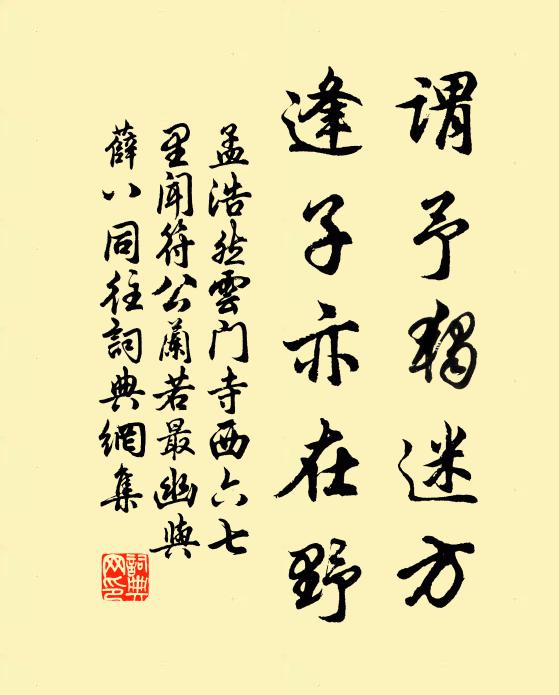 谓予独迷方
逢子亦在野
孟浩然雲门寺西六七
里闻符公蘭若最幽與
薛八同往詞典網集
詞典
网印